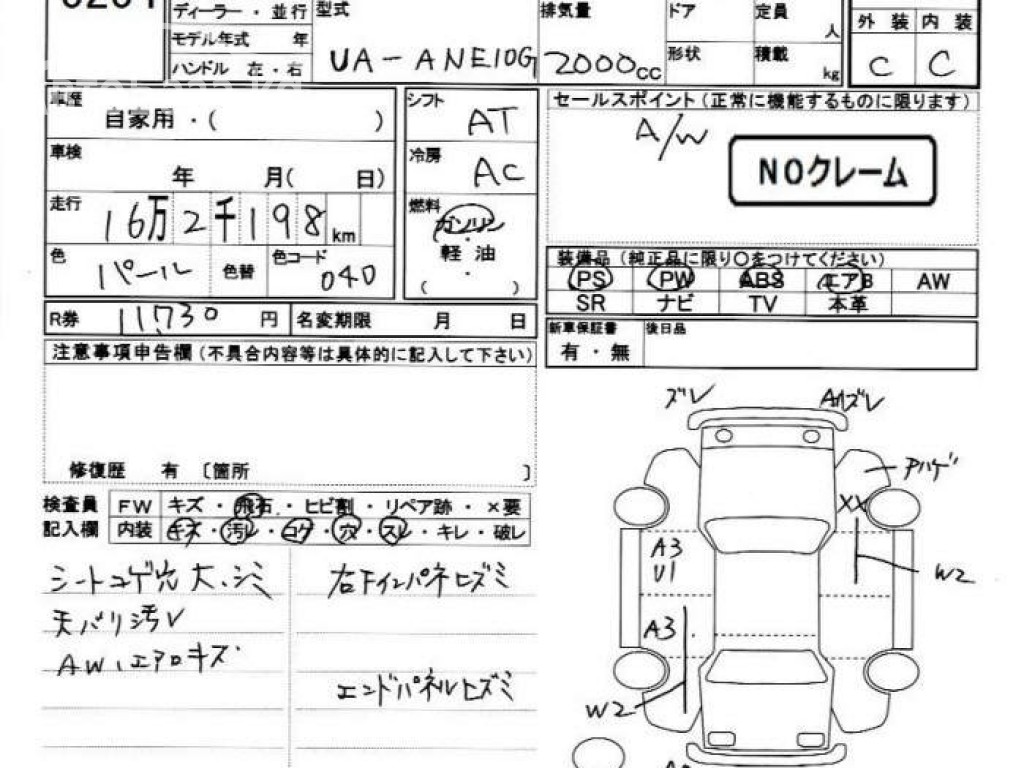 ディーラー・並行
モデル年式 年
ハンドル 左・右
型式
UA-ANE10G
排気量
2000cc
ドア
形状
定員
人
積載
kg
外装 内装
C C
車歴
自家用・( )
車検
年 月( 日)
走行
16万2千198km
色
パール
色替
色コード
040
シフト
AT
冷房
AC
燃料
ガソリン
軽油
( )
R券 11,730 円
名変期限 月 日
セールスポイント(正常に機能するものに限ります)
A/W
NOクレーム
装備品(純正品に限り〇をつけてください)
PS PW ABS エアB AW
SR ナビ TV 本革
新車保証書
有・無
後日品
注意事項申告欄(不具合内容等は具体的に記入して下さい)
修復歴 有 〔箇所 〕
検査員
記入欄
FW キズ・飛石・ヒビ割・リペア跡・×要
内装 キズ・汚レ・コゲ・穴・スレ・キレ・破レ
シートコゲ穴大、シミ
天バリ汚レ
AW、エアロキズ
右下インパネヒズミ
エンドパネルヒズミ
ズレ
ハゲ
XX
A3
U1
W2
A3
W2